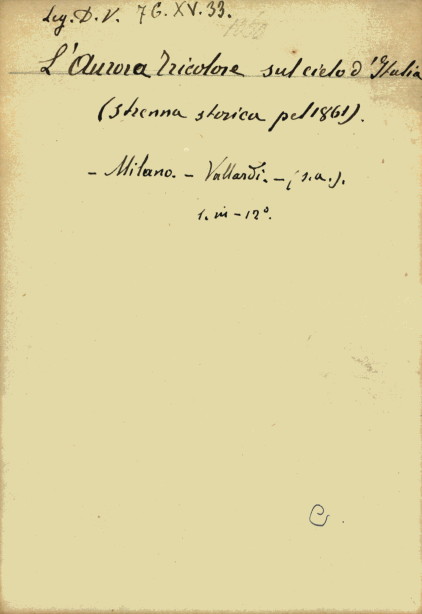 Leg. D. V. 7G. XV. 33.
L'Aurora Tricolore sul cielo d'Italia
(strenna storica pel 1861).
- Milano. - Vallardi. - (s.a.).
1. in - 12°.